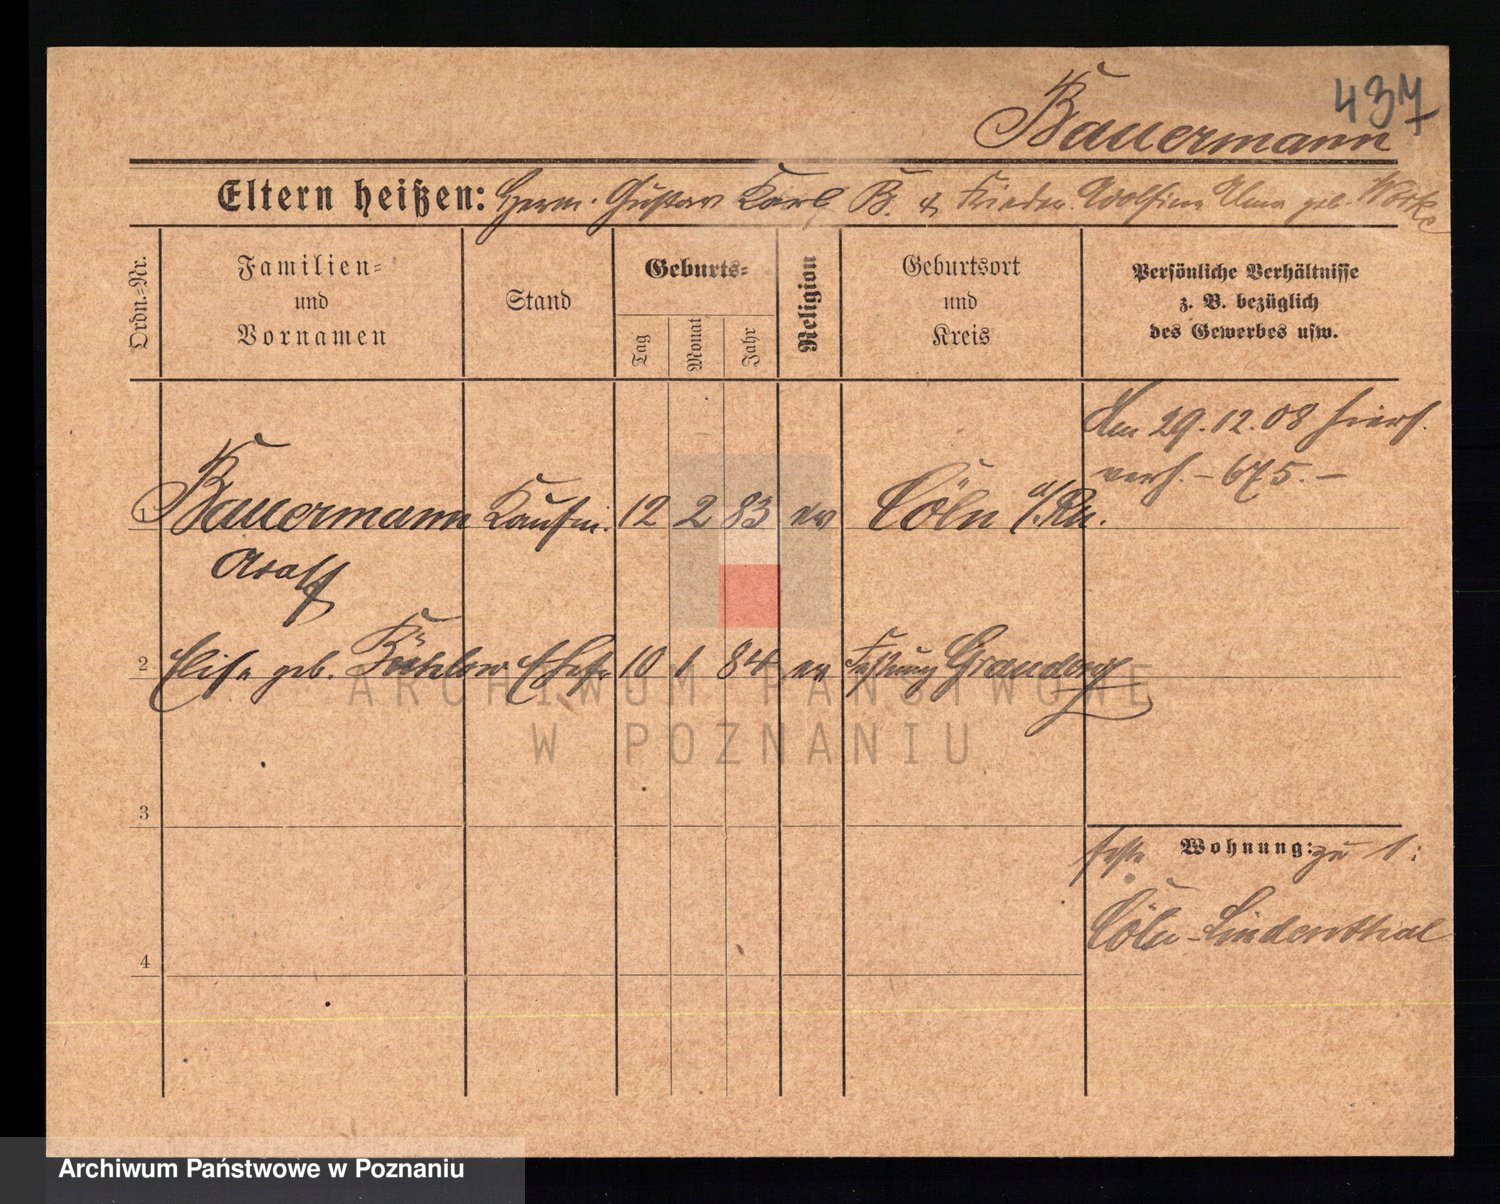 437
Bauermann
Eltern heißen: Herm. Gustav Karl B. & Frieder. Adolfine Alma geb.
Ordn.-Nr.
Familien-
und
Vornamen
Stand
Geburts-
Tag
Monat
Jahr
Religion
Geburtsort
und
Kreis
Persönliche Verhältnisse
z. B. bezüglich
des Gewerbes usw.
Am 29.12.08 hiers.
verh. - 675. -
1 Bauermann Kaufm. 12 2 83 ev Cöln a/Rh.
Adolf
2 Elise geb. Ehefr. 10 1 84 ev Festung Graudenz
3
feste Wohnung: zu 1:
Cöln-Lindenthal
4
ARCHIWUM PAŃSTWOWE
W POZNANIU
Archiwum Państwowe w Poznaniu